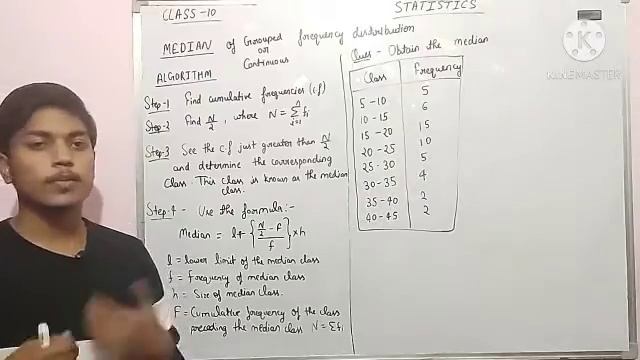 CLASS-10
STATISTICS
MEDIAN of Grouped or Continuous frequency distribution
ALGORITHM
Step-1 Find cumulative frequencies (c.f)
Step-2 Find N/2, where N = n∑i=1 fi
Step-3 See the c.f just greater than N/2
and determine the corresponding
Class. This class is known as the median
class.
Step-4 - Use the formula:-
Median = l + {(N/2 - F)/f} × h
l = lower limit of the median class
f = frequency of median class
h = Size of median class.
F = Cumulative frequency of the class
preceding the median class N = ∑fi
Ques - Obtain the median
Class Frequency
5-10 5
10-15 6
15-20 15
20-25 10
25-30 5
30-35 4
35-40 2
40-45 2
KINEMASTER